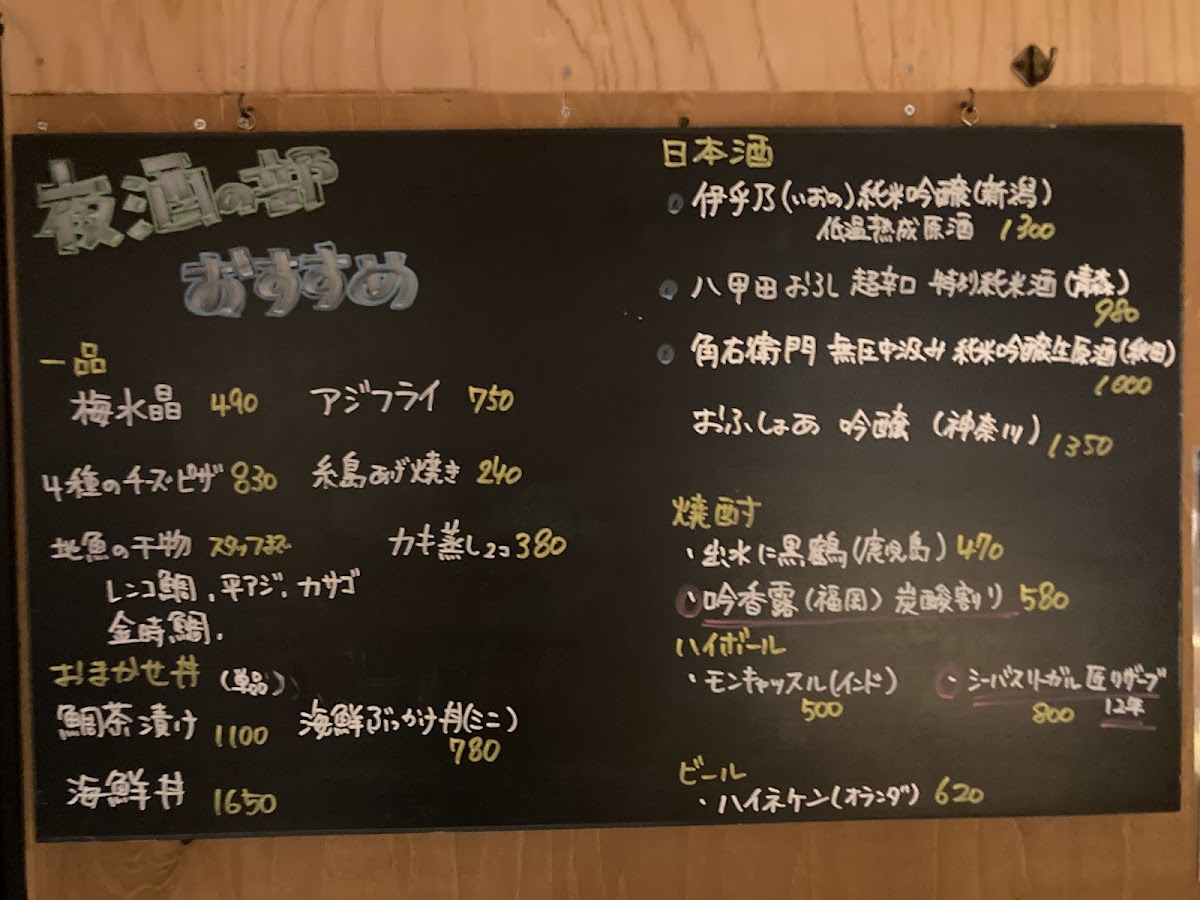 夜酒の部
おすすめ
一品
梅水晶 490 アジフライ 750
4種のチーズピザ 830 糸島あげ焼き 240
地魚の干物 スタッフまで カキ蒸し2コ 380
レンコ鯛、平アジ、カサゴ
金時鯛、
おまかせ丼 (単品)
鯛茶漬け 1100 海鮮ぶっかけ丼(ミニ)
780
海鮮丼 1650
日本酒
伊乎乃(いおの)純米吟醸(新潟)
低温熟成原酒 1300
八甲田おろし 超辛口 特別純米酒(青森)
980
角右衛門 無圧中汲み 純米吟醸生原酒(秋田)
1000
おふしょあ 吟醸 (神奈川) 1350
焼酎
・出水に黒鶴(鹿児島) 470
・吟香露(福岡) 炭酸割り 580
ハイボール
・モンキャッスル(インド) ・シーバスリーガル 匠リザーブ
500 800 12年
ビール
・ハイネケン(オランダ) 620